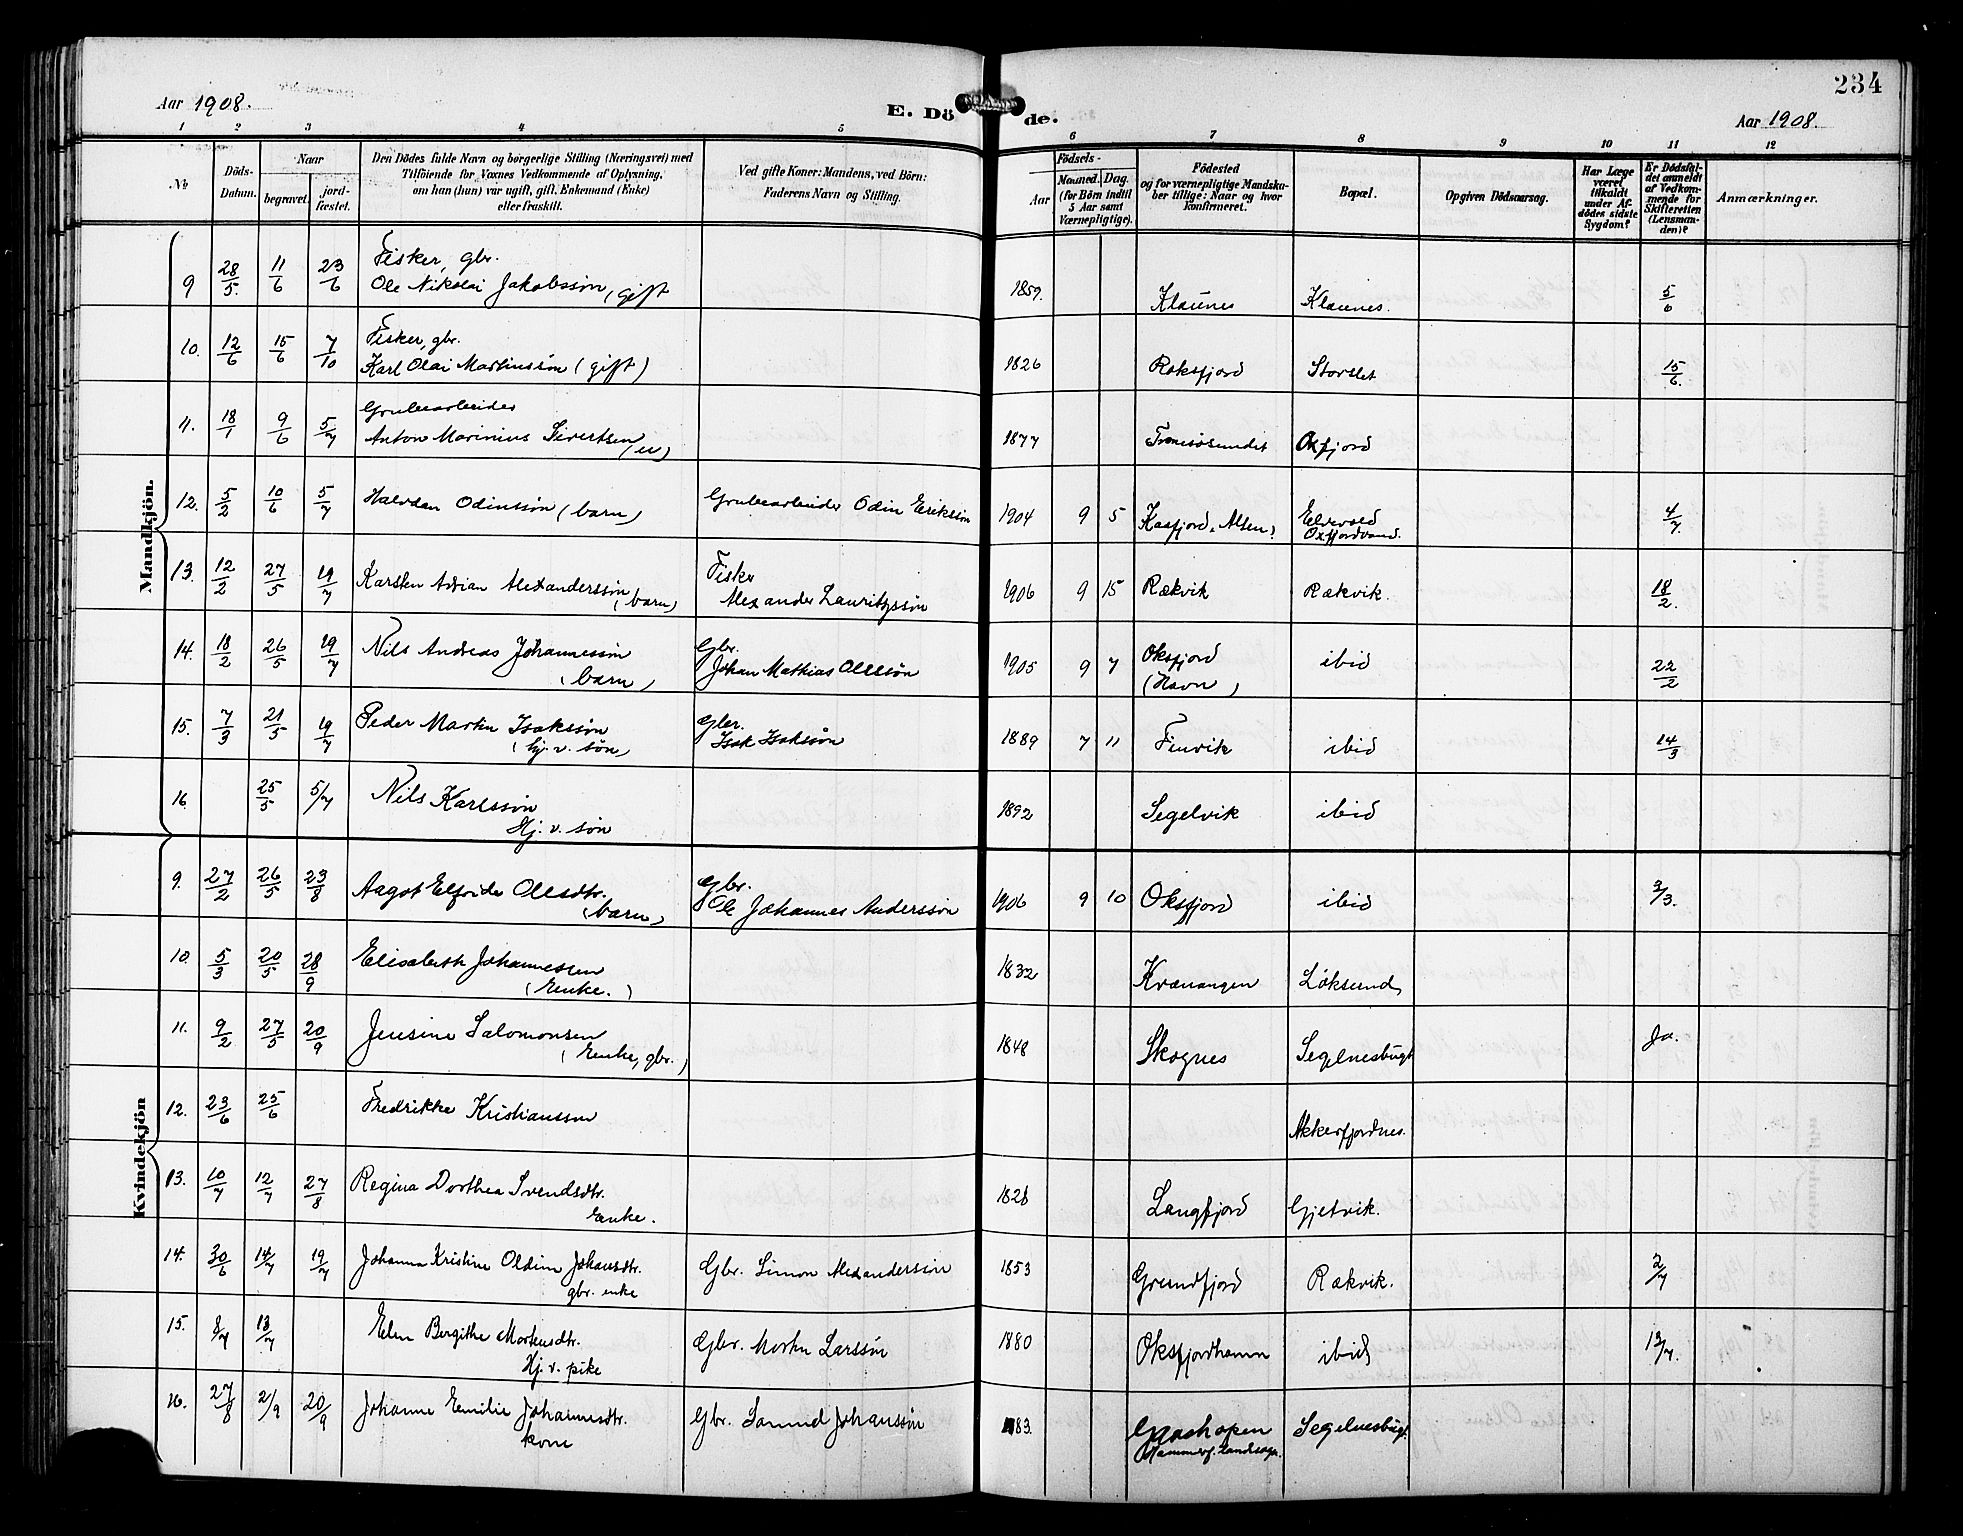 234
Aar 1908.
E. Dö de.
Aar 1908.
1 2 3 4 5 6 7 8 9 10 11 12
No
Döds-Datum.
Naar
begravet.
jord-fæstet.
Den Dödes fulde Navn og borgerlige Stilling (Næringsvei) med
Tilföiende for Voxnes Vedkommende af Oplysning,
om han (hun) var ugift, gift, Enkemand (Enke)
eller fraskilt.
Ved gifte Koner: Mandens, ved Börn:
Faderens Navn og Stilling.
Födsels-
Aar
Maaned. Dag.
(for Börn indtil
5 Aar samt
Værnepligtige).
Födested
og for værnepligtige Mandska-
ber tillige: Naar og hvor
konfirmeret.
Bopæl.
Opgiven Dödsaarsag.
Har Læge
været
tilkaldt
under Af-
dödes sidste
Sygdom?
Er Dödsfal-
det anmeldt
af Vedkom-
mende for
Skifteretten
(Lensman-
den)?
Anmærkninger.
Mandkjön.
9 28/5. 11/6 23/6 Fisker, gbr.
Ole Nikolai Jakobssön, (gift 1859. Klaunes Klaunes. 5/6
10. 12/6 15/6 7/10 Fisker, gbr.
Karl Olai Martinussön (gift) 1826 Roksfjord Storslet 15/6.
11. 18/1 9/6 5/7 Grubearbeider
Anton Marinius Sivertsen (u) 1877 Tromsösundet Oxfjord
12. 5/2 10/6 5/7 Halvdan Odinssön (barn) Grubearbeider Odin Erikssön 1904 9 5 Kaafjord, Alten, Elvevold
Oxfjordvand. 4/7
13. 12/2 27/5 19/7 Karsten Adrian Alexanderssön (barn) Fisker
Alexander Lauritzssön 1906 9 15 Rækvik Rækvik. 18/2.
14. 18/2 26/5 19/7 Nils Andreas Johannessön
(barn) Gbr.
Johan Mathias Olessön 1905 9 7 Oksfjord
(Havn) ibid 22/2
15. 7/3 21/5 19/7 Peder Martin Isakssön
(hj. v. søn) Gbr.
Isak Isakssön 1889 7 11 Finvik ibid 14/3
16. 25/5 5/7 Nils Karlssön
Hj. v. søn 1892 Segelvik ibid
Kvindekjön
9. 27/2 26/5 23/8 Aagot Elfride Olesdtr.
(barn) Gbr.
Ole Johannes Anderssön 1906 9 10 Oksfjord ibid 3/3.
10. 5/3 20/5 28/9 Elisabeth Johannessen
(Enke.) 1832 Kvænangen Löksund
11. 9/2 27/5 20/9 Jensine Salomonsen
(Enke, gbr.) 1848 Skognes Segelnesbugt Ja.
12. 23/6 25/6 Fredrikke Kristiansson Akkerfjordnes.
13. 10/7 12/7 27/8 Regina Dorthea Svendsdtr.
Enke. 1828 Langfjord Gjetvik.
14. 30/6 14/7 19/7 Johanna Kristine Oldine Johansdtr.
gbr. enke Gbr. Simon Alexanderssön 1853 Grundfjord Rækvik. 2/7
15. 8/7 13/7 Elen Bergithe Mortensdtr.
Hj. v. pike Gbr. Morten Larssön 1880 Oksfjordhamn ibid 13/7.
16. 27/8 2/9 20/9 Johanne Emilie Johannesdtr.
kone Gbr. Samuel Johanssön 83. Gaashopen
Hammerf. Landsogn. Segelnesbugt.